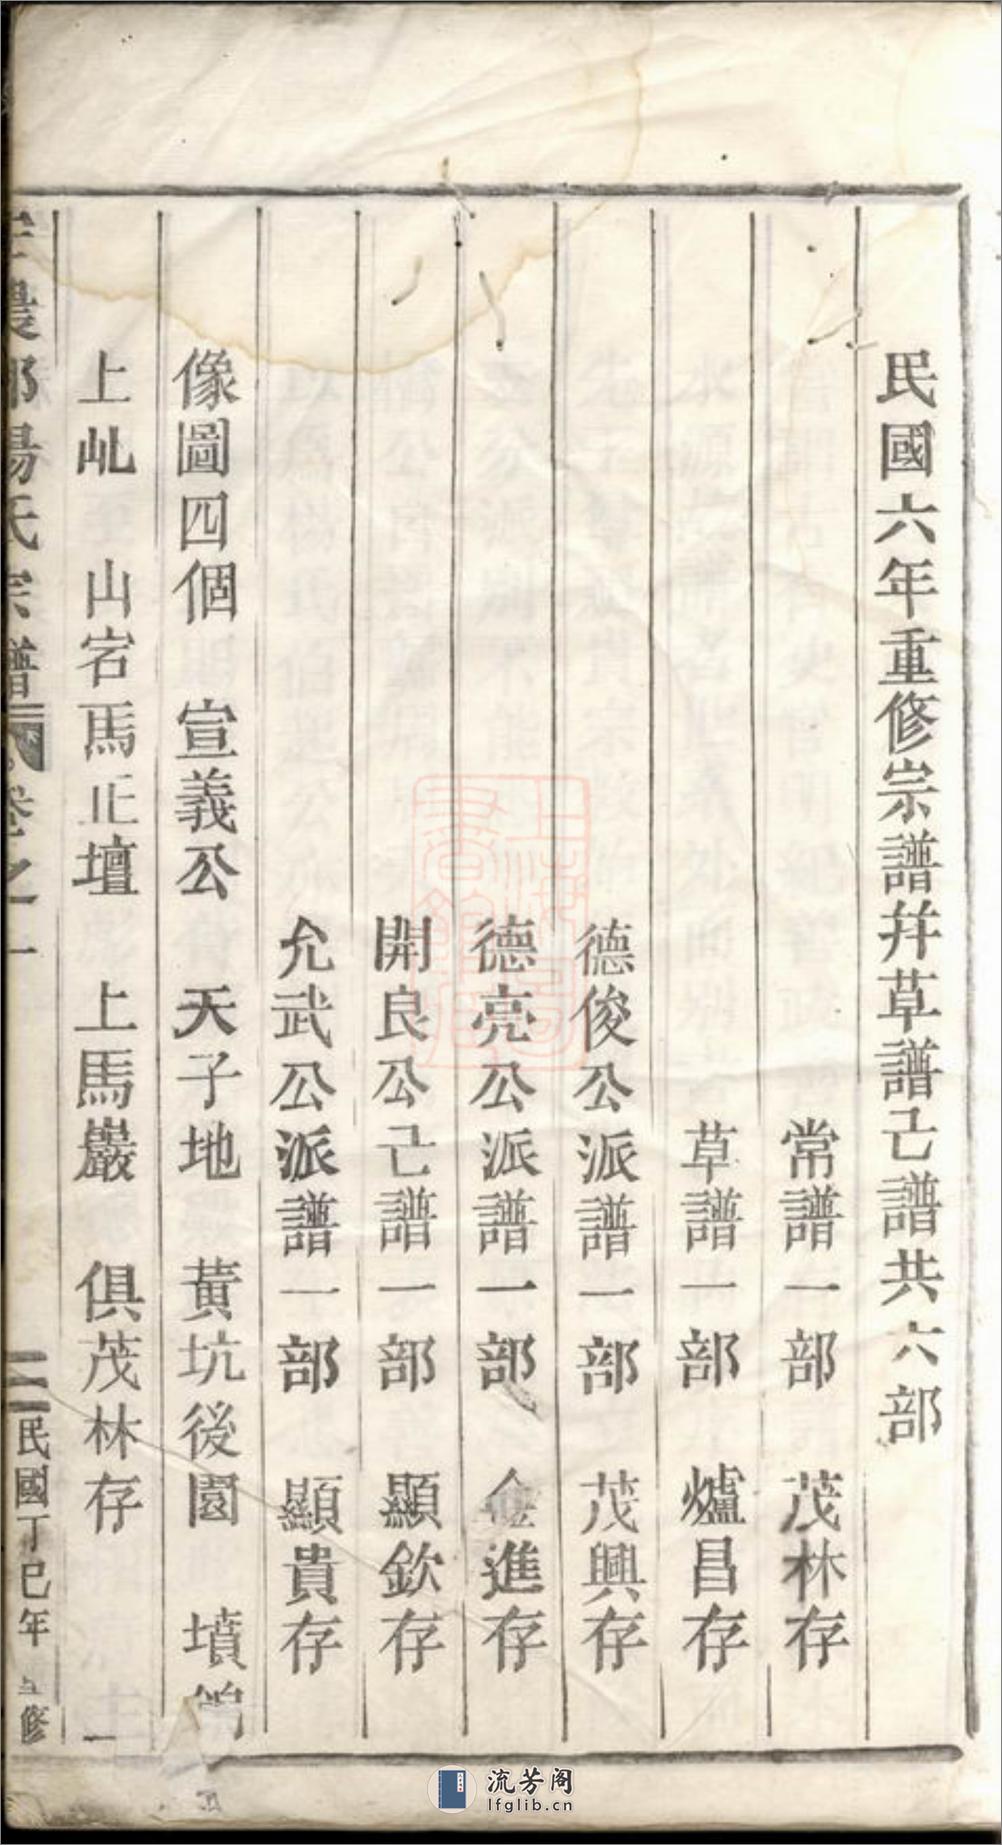 民國六年重修宗譜幷草譜己譜共六部
常譜一部 茂林存
草譜一部 爐昌存
德俊公派譜一部 茂興存
德亮公派譜一部 金進存
開良公己譜一部 顯欽存
允武公派譜一部 顯貴存
像圖四個 宣義公 天子地 黃坑後園 墳
上乩 山宕馬正壇 上馬巖 俱茂林存
農郡楊氏宗譜 卷之一 民國丁巳年重修
流芳阁
lfglib.cn